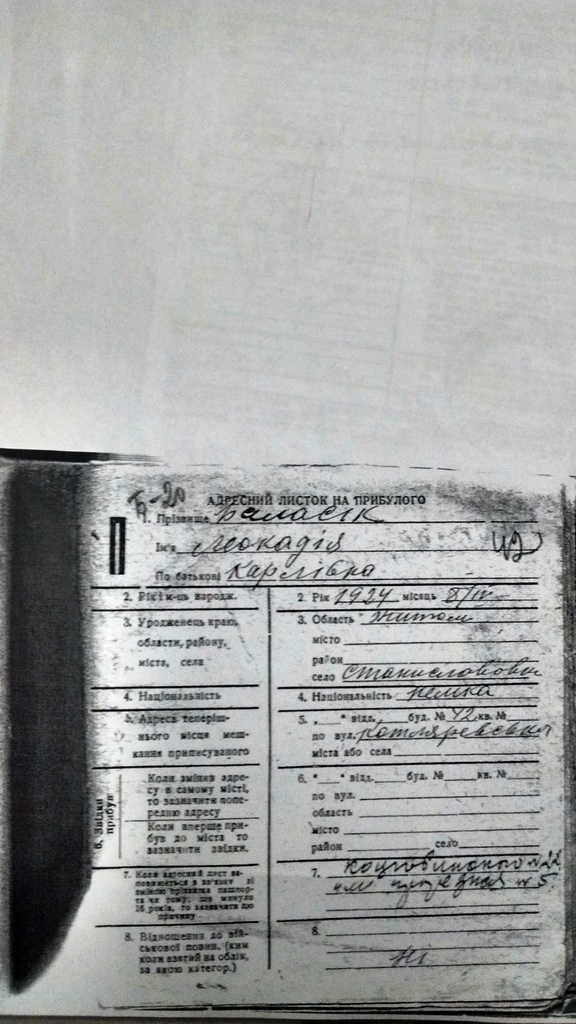 Б-20
АДРЕСНИЙ ЛИСТОК НА ПРИБУЛОГО
1. Прізвище Баласік
Ім'я Леокадія 42
По батькові Карлівна
2. Рік і м-ць народж.
2. Рік 1924 місяць 8/IV
3. Уродженець краю, області, району, міста, села
3. Область Житом
місто
район
село Станиславовка
4. Національність
4. Національність немка
5. Адреса теперіш-
нього місця меш-
кання приписуваного
5. „ “ відд. буд. № 42 кв. №
по вул. Котляревський
міста або села
6. Звідки прибув
Коли змінив адре-
су в самому місті,
то зазначити попе-
редню адресу
Коли вперше при-
був до міста то
зазначити звідки.
6. “ “ відд. буд. № кв. №
по вул.
область
місто
район село
7. Коли адресний лист за-
повнюється в зв'язку зі
зміною прізвища паспор-
та чи тому, що минуло
16 років, то зазначити цю
причину
7. Коцюбинского № 22
или № 5
8. Відношення до вій-
ськової повин. (ким
коли взятий на облік,
за якою категор.)
8.
Ні